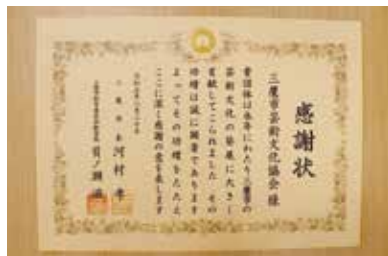 感謝状
三鷹市芸術文化協会様
貴団体は永年にわたり三鷹市の
芸術文化の発展に大きく
貢献してこられました その
功績は誠に顕著であります
よってその功績をたたえ
ここに深く感謝の意を表します
三鷹市長 河村 孝